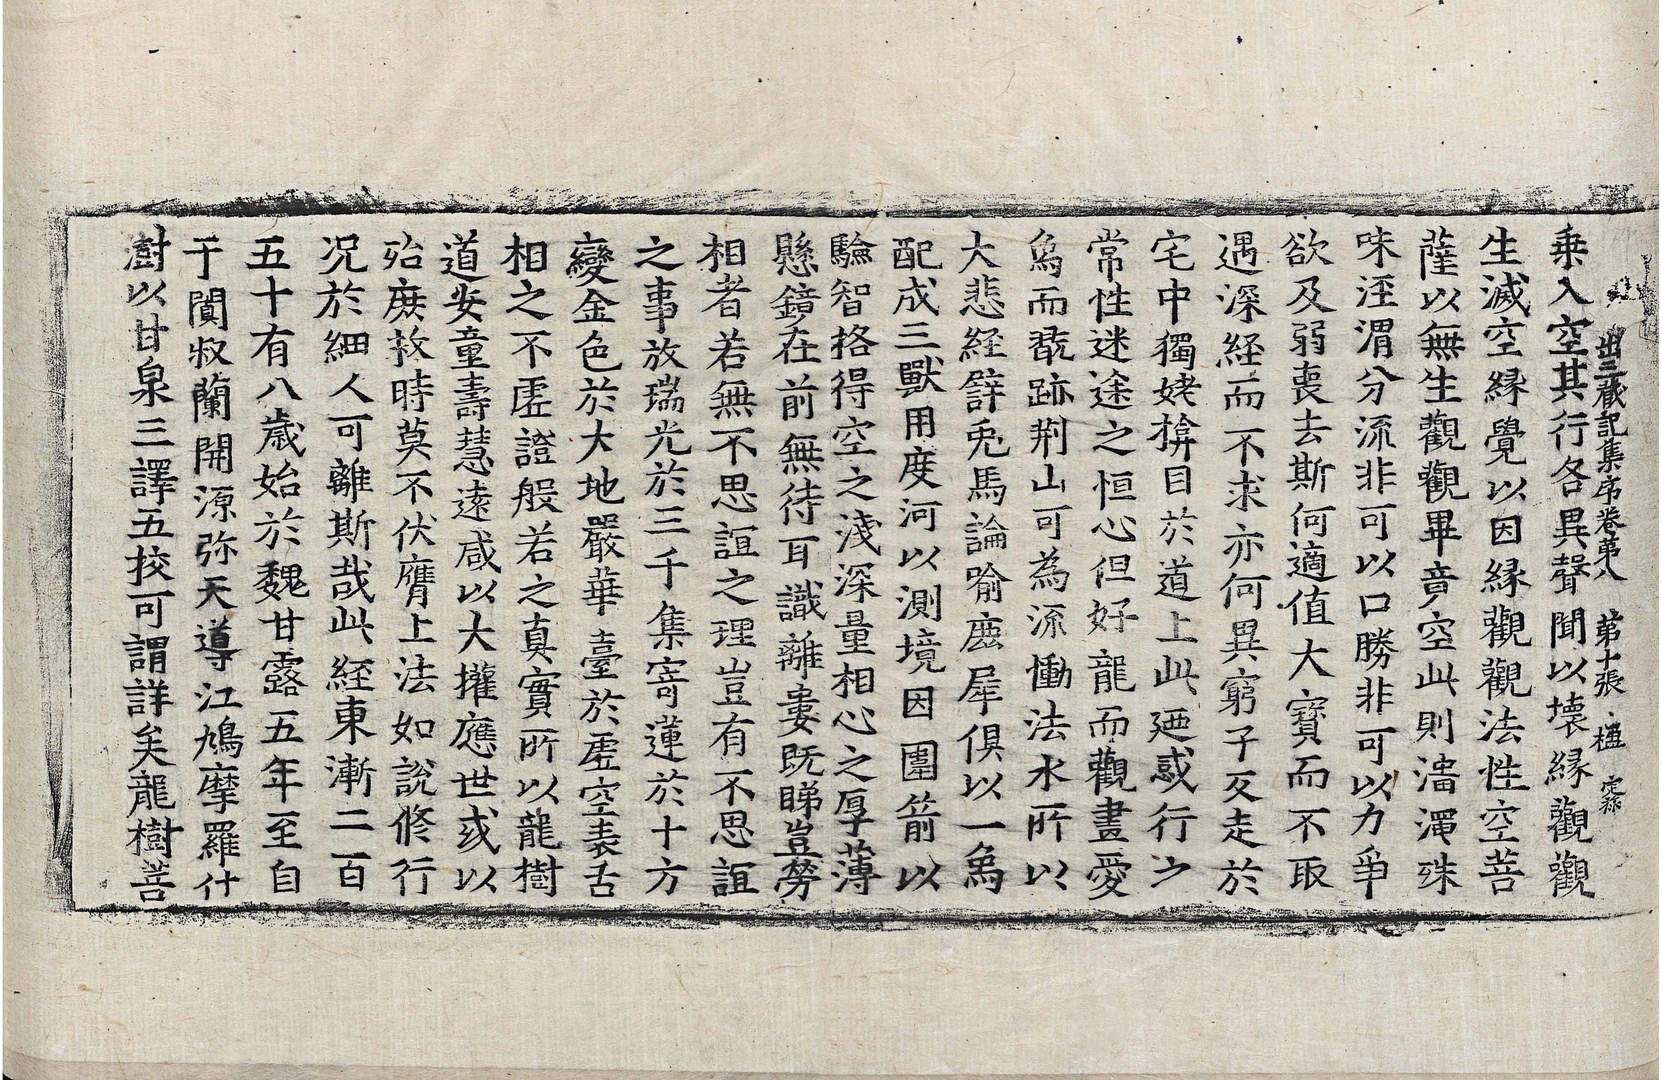 出三藏記集序卷第八 第十張 楹
乗入空其行各異聲聞以壊縁觀觀
生滅空縁覺以因縁觀觀法性空菩
薩以無生觀觀畢竟空此則淄澠殊
味涇渭分流非可以口勝非可以力爭
欲及弱喪去斯何適值大寶而不取
遇深經而不求亦何異窮子反走於
宅中獨姥揜目於道上此廼惑行之
常性迷途之恒心但好龍而觀畫愛
烏而翫跡荆山可為源慟法水所以
大悲經譬兎馬論喻鹿犀俱以一象
配成三獸用度河以測境因圍箭以
驗智格得空之淺深量相心之厚薄
懸鏡在前無待耳識離婁既睇豈勞
相者若無不思誼之理豈有不思誼
之事放瑞光於三千集寄蓮於十方
變金色於大地嚴華臺於虚空表舌
相之不虚證般若之真實所以龍樹
道安童壽慧遠咸以大權應世或以
殆庶救時莫不伏膺上法如說修行
况於細人可離斯哉此經東漸二百
五十有八歲始於魏甘露五年至自
于闐叔蘭開源弥天導江鳩摩羅什
澍以甘泉三譯五挍可謂詳矣龍樹菩